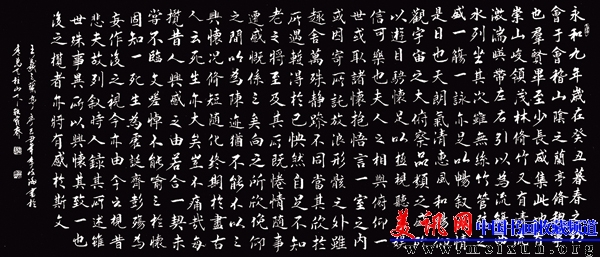 永和九年歲在癸丑暮春之初
會于會稽山陰之蘭亭脩禊
也羣賢畢至少長咸集此地
崇山峻領茂林脩竹又有清
激湍暎帶左右引以為流觴
水列坐其次雖無絲竹管弦之
盛一觴一詠亦足以暢敘幽
是日也天朗氣清惠風和暢
觀宇宙之大俯察品類之盛
以遊目騁懷足以極視聽之
信可樂也夫人之相與俯仰一
世或取諸懷抱悟言一室之內
或因寄所託放浪形骸之外雖
趣舍萬殊靜躁不同當其欣於
所遇蹔得於己快然自足不知
老之將至及其所之既惓情隨事
遷感慨係之矣向之所欣俛仰
之間以為陳迹猶不能不以之
興懷況脩短隨化終期於盡古
人云死生亦大矣豈不痛哉每
攬昔人興感之由若合一契未
甞不臨文嗟悼不能喻之於懷
固知一死生為虛誕齊彭殤為
妄作後之視今亦由今之視昔
悲夫故列敘時人錄其所述雖
世殊事異所以興懷其致一也
後之攬者亦將有感於斯文
美讯网 中国书画收藏频道
www.meixun.org